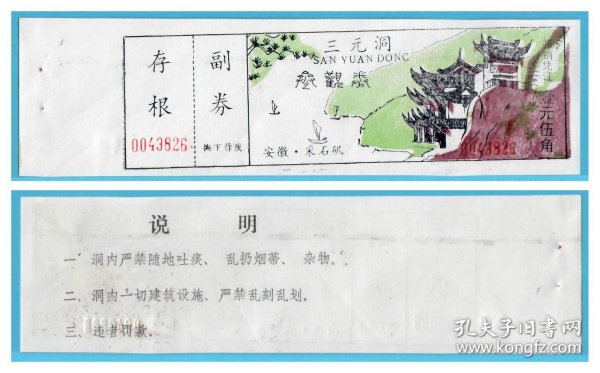 存根
0043826
副券
撕下作废
三元洞
SAN YUAN DONG
参觀券
安徽·采石矶
0043826
壹元伍角
说 明
一、洞内严禁随地吐痰、乱扔烟蒂、杂物。
二、洞内一切建筑设施、严禁乱刻乱划。
三、违者罚款。
孔夫子旧书网
www.kongfz.com